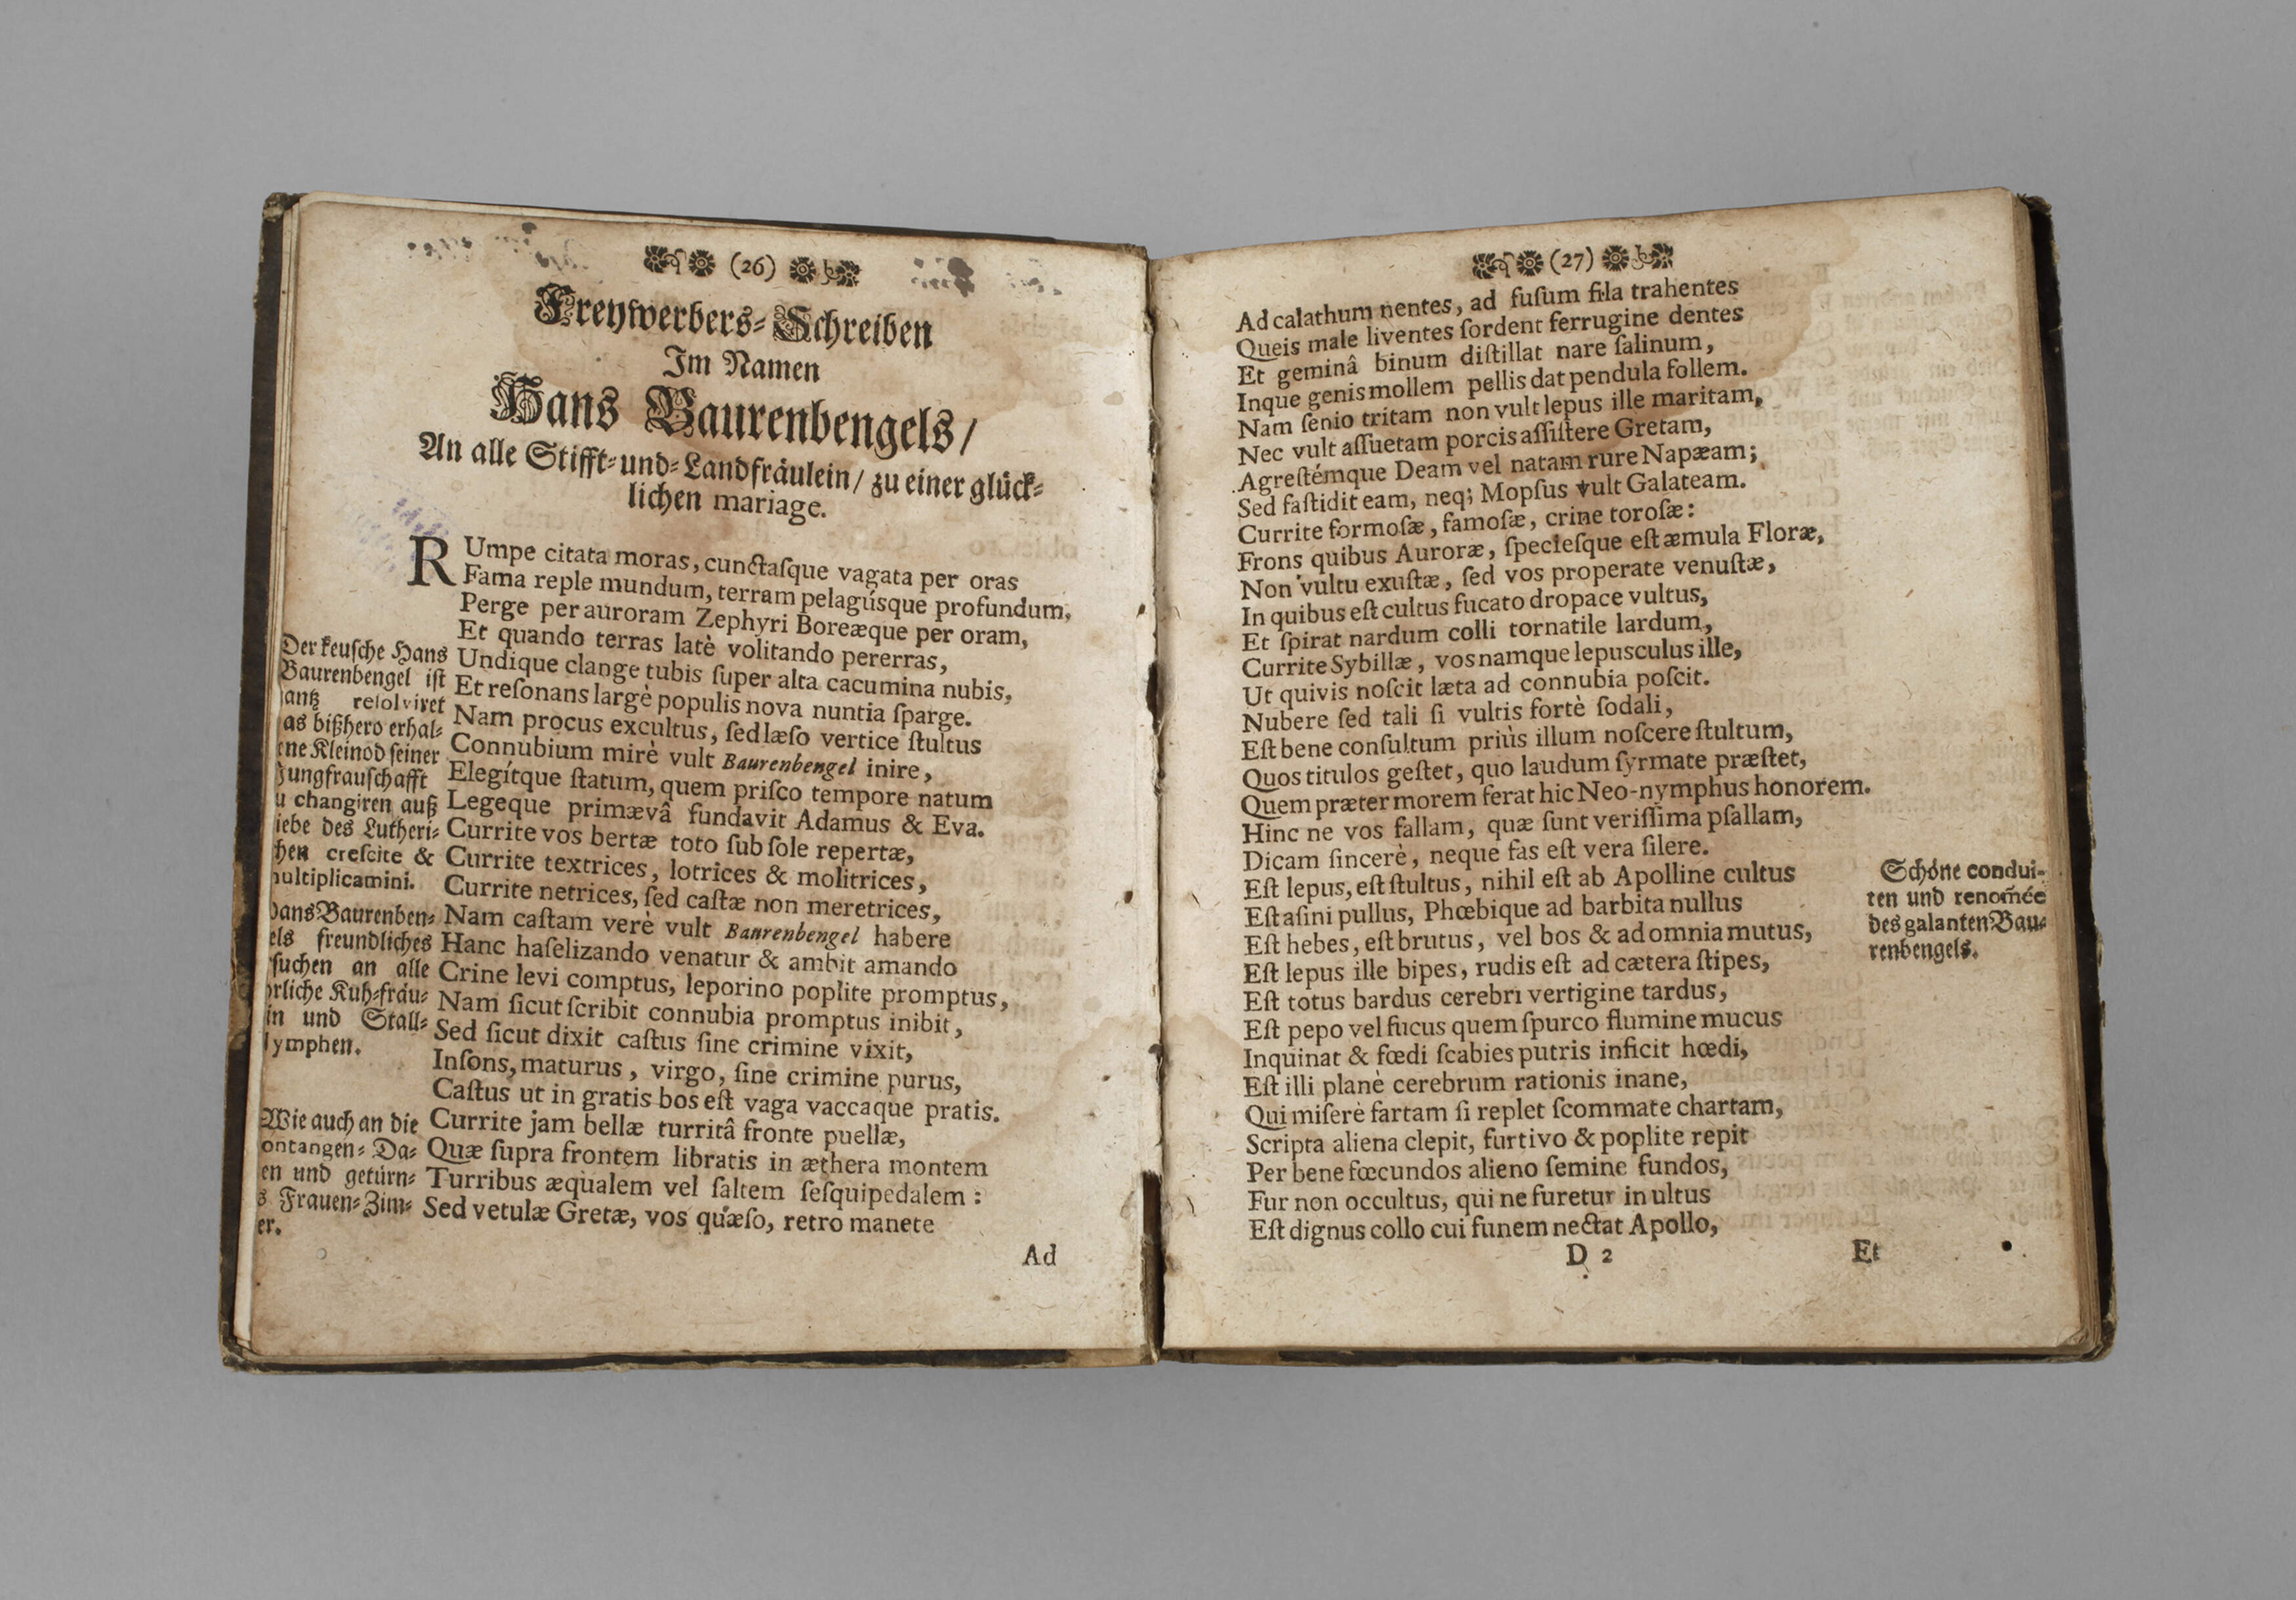 (26)
Freywerbers-Schreiben
Im Namen
Hans Baurenbengels/
An alle Stifft-und-Landfräulein/ zu einer glück-
lichen mariage.
RUmpe citata moras, cunctaſque vagata per oras
Fama reple mundum, terram pelagúsque profundum,
Perge per auroram Zephyri Boreæque per oram,
Et quando terras latè volitando pererras,
Undique clange tubis ſuper alta cacumina nubis,
Et reſonans largè populis nova nuntia ſparge.
Nam procus excultus, ſed læſo vertice ſtultus
Connubium mirè vult Baurenbengel inire,
Elegítque ſtatum, quem priſco tempore natum
Legeque primævâ fundavit Adamus & Eva.
Currite vos bertæ toto ſub ſole repertæ,
Currite textrices, lotrices & molitrices,
Currite netrices, ſed caſtæ non meretrices,
Nam caſtam verè vult Baurenbengel habere
Hanc haſelizando venatur & ambit amando
Crine levi comptus, leporino poplite promptus,
Nam ſicut ſcribit connubia promptus inibit,
Sed ſicut dixit caſtus ſine crimine vixit,
Inſons, maturus, virgo, ſine crimine purus,
Caſtus ut in gratis bos eſt vaga vaccaque pratis.
Currite jam bellæ turritâ fronte puellæ,
Quæ ſupra frontem libratis in æthera montem
Turribus æqualem vel ſaltem ſeſquipedalem:
Sed vetulæ Gretæ, vos quæſo, retro manete
Ad
Der keuſche Hans
Baurenbengel iſt
antz reſolviret
as bißhero erhal-
ene Kleinod ſeiner
Jungfrauſchafft
u changiren auß
iebe des Lutheri-
chen creſcite &
multiplicamini.
Hans Baurenben-
els freundliches
rſuchen an alle
rliche Kuh-fräu-
in und Stall-
Nymphen.
Wie auch an die
ontangen-Da-
en und getürn-
s Frauen-Zim-
er.
(27)
Ad calathum nentes, ad fuſum fila trahentes
Queis male liventes ſordent ferrugine dentes
Et geminâ binum diſtillat nare ſalinum,
Inque genis mollem pellis dat pendula follem.
Nam ſenio tritam non vult lepus ille maritam,
Nec vult aſſuetam porcis aſſiſtere Gretam,
Agreſtémque Deam vel natam rure Napæam;
Sed faſtidit eam, neq; Mopſus vult Galateam.
Currite formoſæ, famoſæ, crine toroſæ:
Frons quibus Auroræ, ſpecieſque eſt æmula Floræ,
Non vultu exuſtæ, ſed vos properate venuſtæ,
In quibus eſt cultus fucato dropace vultus,
Et ſpirat nardum colli tornatile lardum,
Currite Sybillæ, vos namque lepusculus ille,
Ut quivis noſcit læta ad connubia poſcit.
Nubere ſed tali ſi vultis fortè ſodali,
Eſt bene conſultum priùs illum noſcere ſtultum,
Quos titulos geſtet, quo laudum ſyrmate præſtet,
Quem præter morem ferat hic Neo-nymphus honorem.
Hinc ne vos fallam, quæ ſunt veriſſima pſallam,
Dicam ſincerè, neque fas eſt vera ſilere.
Eſt lepus, eſt ſtultus, nihil eſt ab Apolline cultus
Eſt aſini pullus, Phœbique ad barbita nullus
Eſt hebes, eſt brutus, vel bos & ad omnia mutus,
Eſt lepus ille bipes, rudis eſt ad cætera ſtipes,
Eſt totus bardus cerebri vertigine tardus,
Eſt pepo vel fucus quem ſpurco flumine mucus
Inquinat & fœdi ſcabies putris inficit hœdi,
Eſt illi planè cerebrum rationis inane,
Qui miſerè fartam ſi replet ſcommate chartam,
Scripta aliena clepit, furtivo & poplite repit
Per bene fœcundos alieno ſemine fundos,
Fur non occultus, qui ne furetur inultus
Eſt dignus collo cui funem nectat Apollo,
D 2
Et
Schöne condui-
ten und renom̃ée
des galanten Bau-
renbengels.